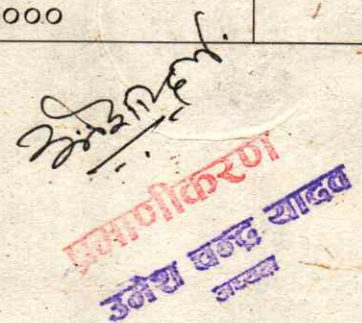 000
प्रमाणीकरण
उमेश चन्द्र यादव
अध्यक्ष